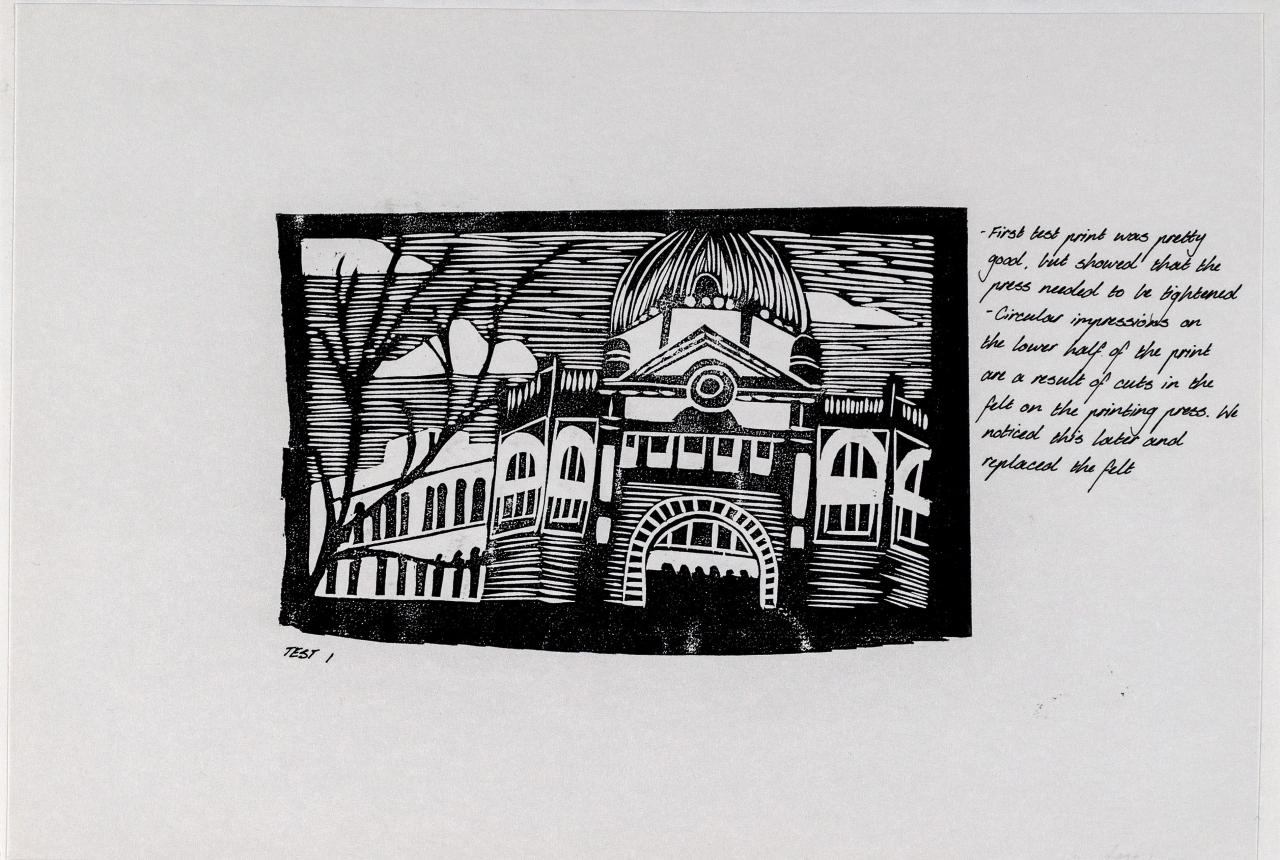 - First test print was pretty
good, but showed that the
press needed to be tightened
- Circular impressions on
the lower half of the print
are a result of cuts in the
felt on the printing press. We
noticed this later and
replaced the felt
TEST 1